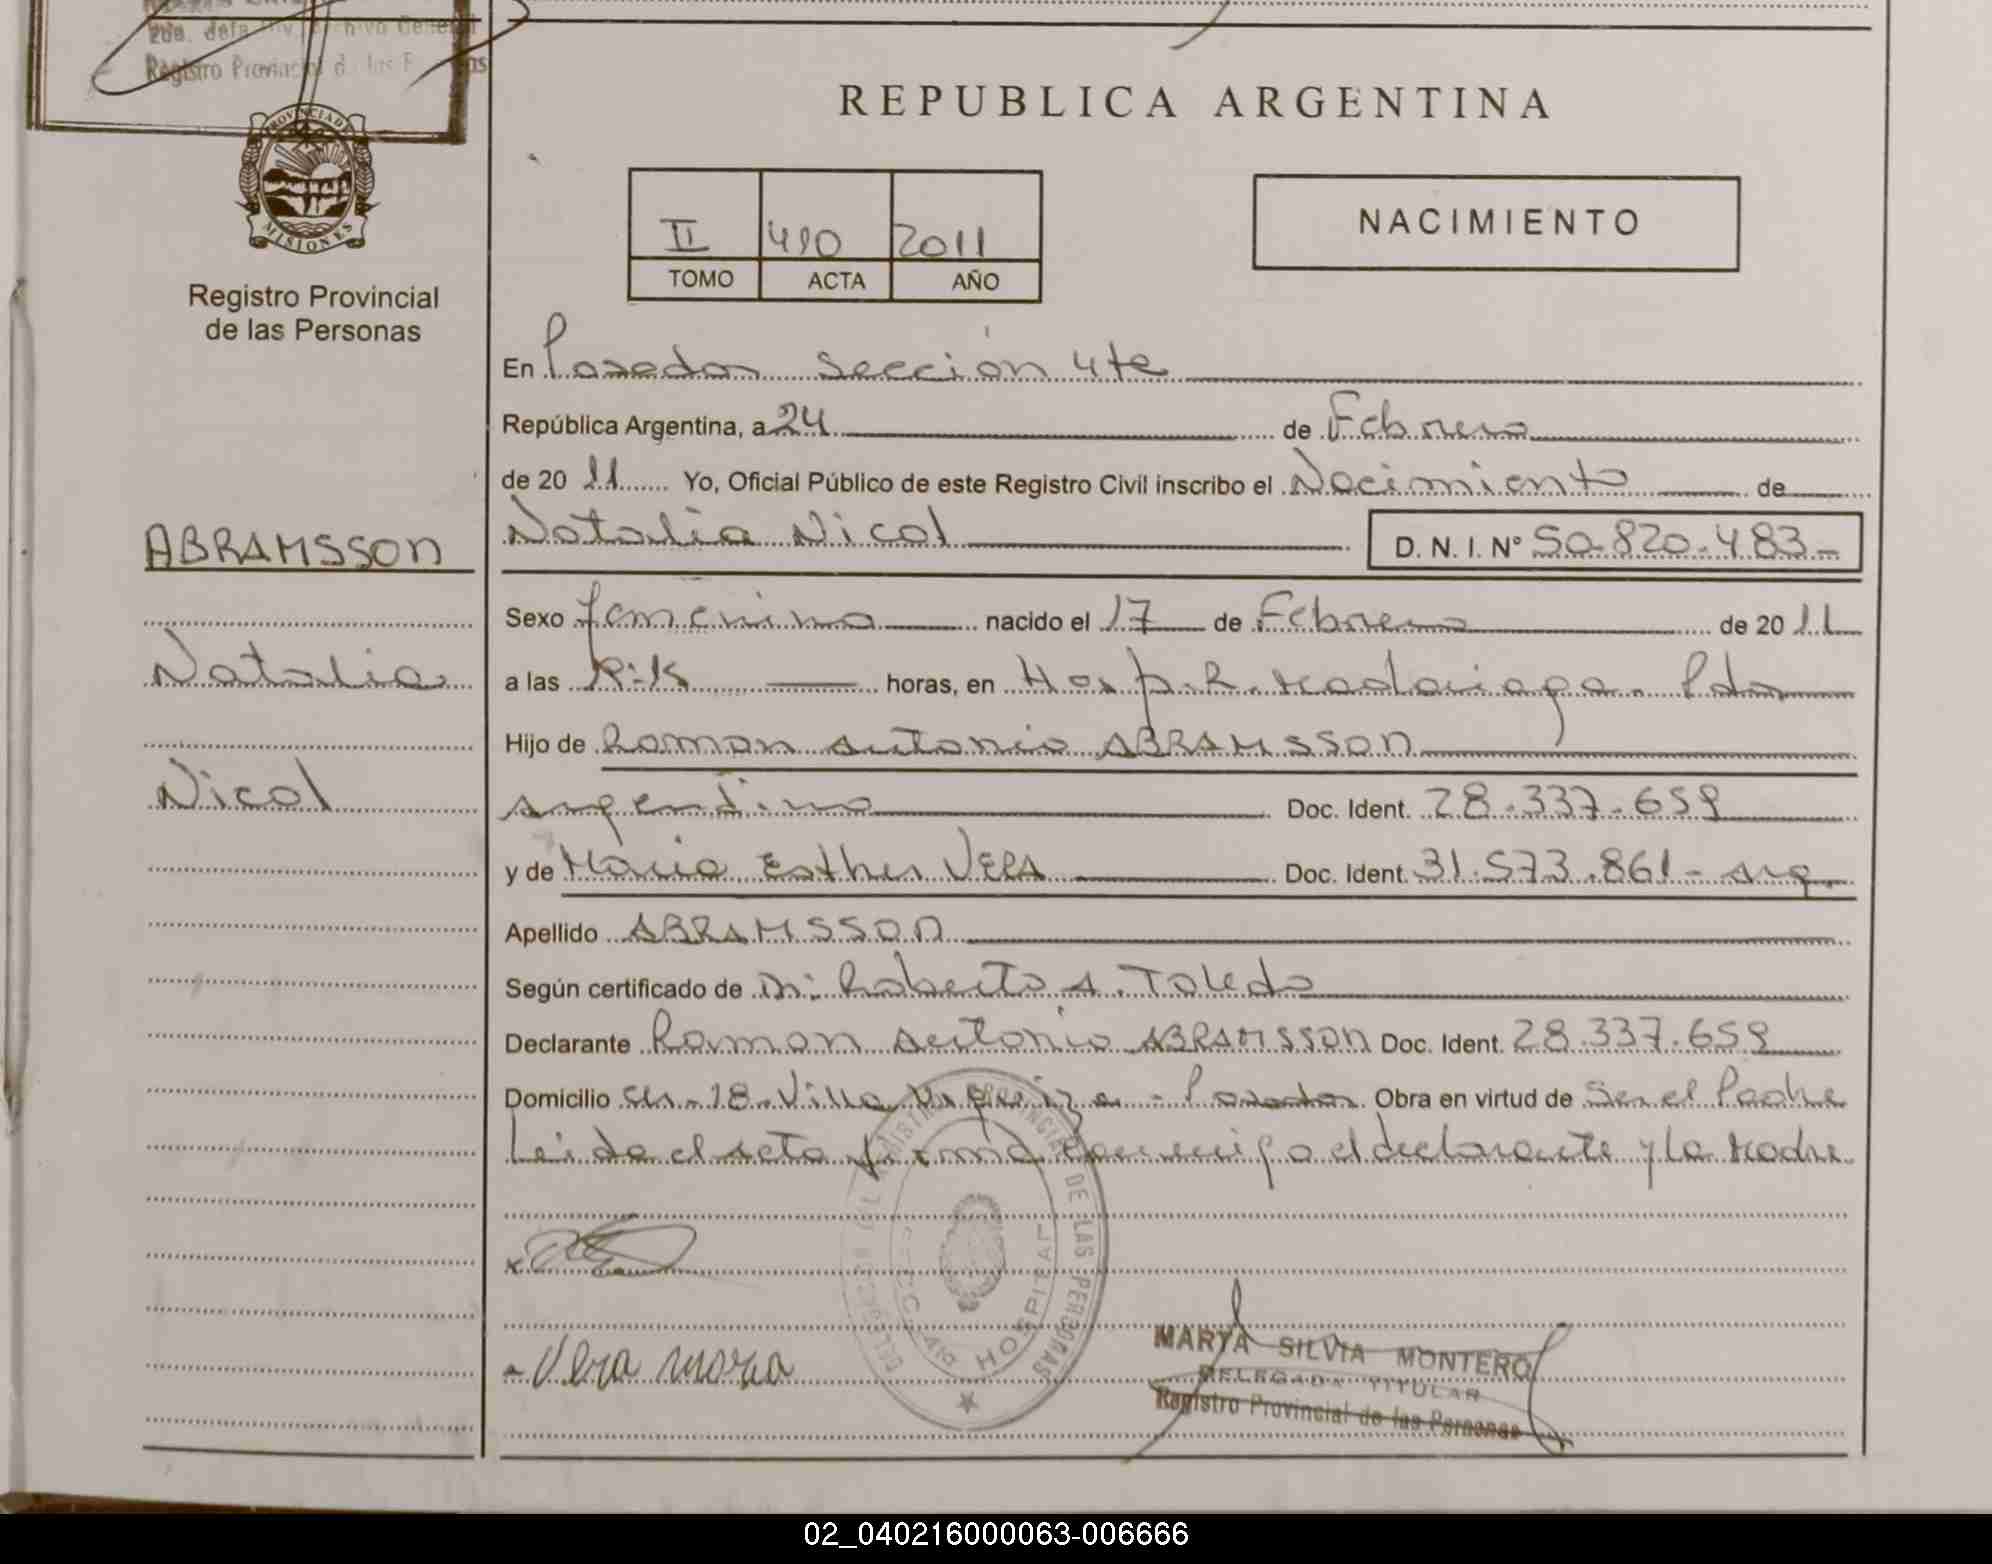 2da. Jefa Div. Archivo General
Registro Provincial de las Personas
PROVINCIA DE
MISIONES
Registro Provincial
de las Personas
REPUBLICA ARGENTINA
II 410 2011
TOMO ACTA AÑO
NACIMIENTO
En Posadas Sección 4ta
República Argentina, a 24 de Febrero
de 20 11 Yo, Oficial Público de este Registro Civil inscribo el Nacimiento de
Natalia Nicol D. N. I. Nº 50.820.483-
ABRAMSSON
Natalia
Nicol
Sexo femenino nacido el 17 de Febrero de 20 11
a las horas, en Hosp. R. Madariaga. Pdas
Hijo de Ramon Antonio ABRAMSSON
argentino Doc. Ident. 28.337.659
y de Maria Esther VERA Doc. Ident. 31.573.861 - arg.
Apellido ABRAMSSON
Según certificado de Dr: Roberto A. Toledo
Declarante Ramon Antonio ABRAMSSON Doc. Ident. 28.337.659
Domicilio Ch - 18 - Villa Urquiza - Posadas Obra en virtud de Ser el Padre
Leida el acta firma conmigo el declarante y la Madre
PROVINCIAL DE LAS PERSONAS
SECC. 4ta HOSPITAL
Vera maria
MARTA SILVIA MONTERO
DELEGADA TITULAR
Registro Provincial de las Personas
02_040216000063-006666